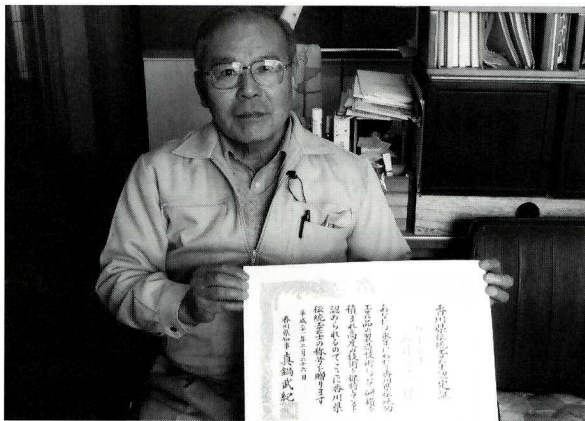 香川県伝統工芸士認定証
あなたは永年にわたり香川県伝統的
工芸品の製造技術の
積まれ高度の技術を保持すると
認められるのでここに香川県
伝統工芸士の称号を贈ります
平成 年二月二十六日
香川県知事 真鍋武紀